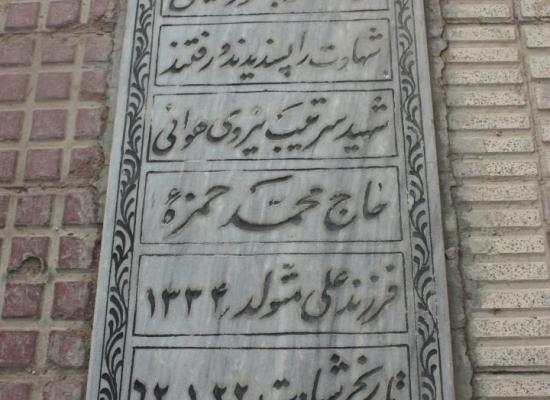 شهادت را پسندیدند و رفتند
شهید سرتیپ نیروی هوائی
حاج محمد حمزهٔ
فرزند علی متولد ۱۳۳۴
تاریخ شهادت